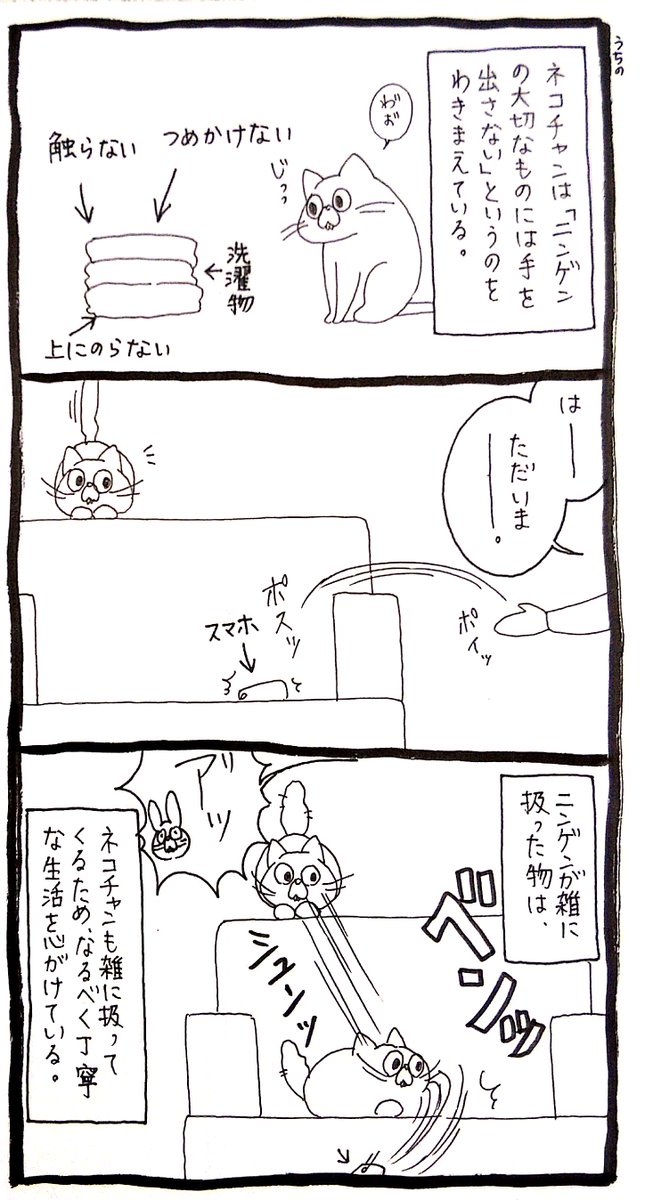 うちの
ネコチャンは「ニンゲン
の大切なものには手を
出さない」というのを
わきまえている。
わ゛ぉ
じっっ
つめかけない
触らない
洗濯物
上にのらない
はー
ただいま
ー。
ポイッ
ポスッ
スマホ
ニンゲンが雑に
扱った物は、
ブンッ
シュンッ
ア゛ーッ
ネコチャンも雑に扱って
くるため、なるべく丁寧
な生活を心がけている。